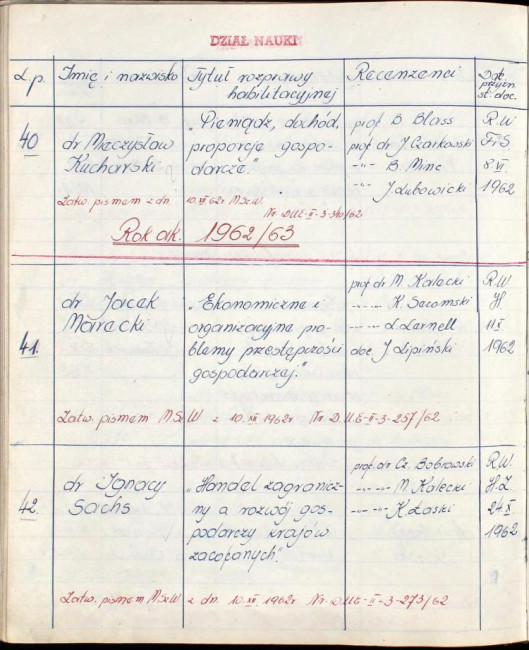 DZIAŁ NAUKI
L.p. Imię i nazwisko Tytuł rozprawy habilitacyjnej Recenzenci Dat. przyzn. st. doc.
40 dr Mieczysław Kucharski
„Pieniądz, dochód, proporcje gospodarcze."
prof. B. Blass
prof dr J. Czarkowski
-"- B. Minc
-"- J. Lubowicki
R.W.
F.S.
8 VI
1962
Zatw. pismem z dn. 10.VI 62r M.S.W. Nr. D.UE-II-3-310/62
Rok ak. 1962/63
41. dr Jacek Marecki
„Ekonomiczne i
organizacyjne pro-
blemy przestępczości
gospodarczej."
prof dr M. Kalecki
-"- K. Secomski
-"- L. Larnell
doc. J. Lipiński
R.W.
H.
11 X
1962
Zatw. pismem M.S.W z 10.XII 1962r Nr. D.UE-II-3-257/62
42. dr Ignacy Sachs
„Handel zagranicz-
ny a rozwój gos-
podarczy krajów
zacofanych".
prof. dr Cz. Bobrowski
-"- M. Kalecki
-"- K. Łaski
R.W.
H.Z.
24 X
1962
Zatw. pismem M.S.W z dn. 10.XII.1962r Nr. D.UE-II-3-273/62